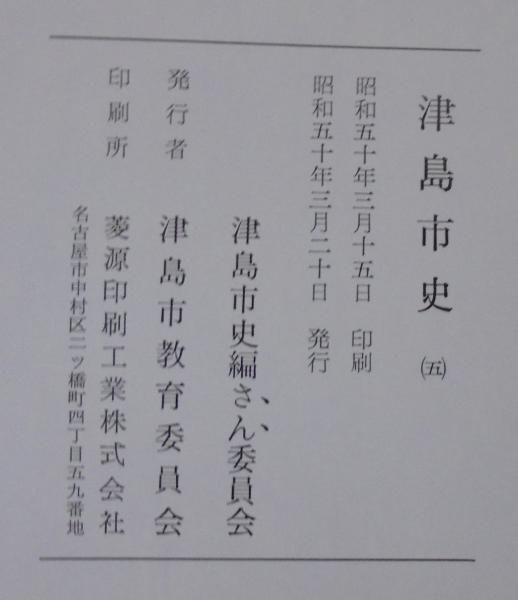 津島市史 ㈤
昭和五十年三月十五日 印刷
昭和五十年三月二十日 発行
津島市史編さん委員会
発行者 津島市教育委員会
印刷所 菱源印刷工業株式会社
名古屋市中村区二ッ橋町四丁目五九番地